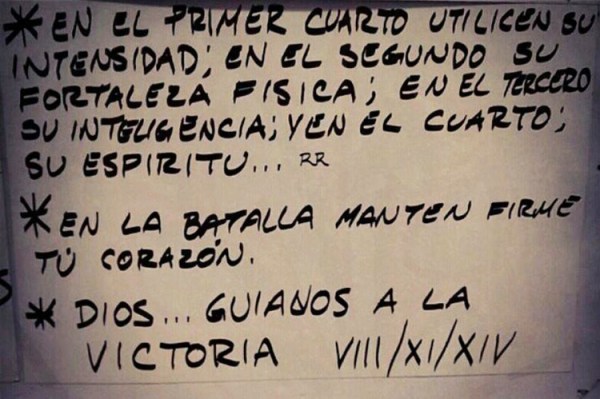 * EN EL PRIMER CUARTO UTILICEN SU
INTENSIDAD; EN EL SEGUNDO SU
FORTALEZA FISICA; EN EL TERCERO
SU INTELIGENCIA; Y EN EL CUARTO;
SU ESPIRITU... RR
* EN LA BATALLA MANTEN FIRME
TÚ CORAZÓN.
* DIOS... GUIANOS A LA
VICTORIA VIII/XI/XIV